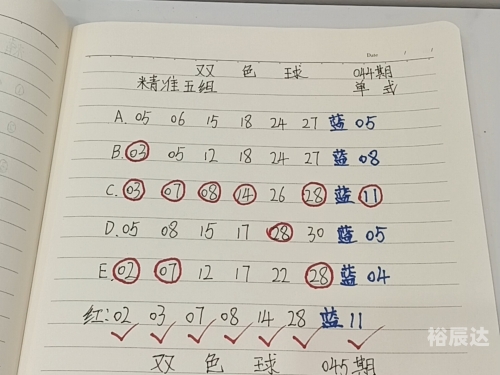 Date
双 色 球 044期
精准五组 单 式
A. 05 06 15 18 24 27 蓝 05
B. 03 05 12 18 24 27 蓝 08
C. 03 07 08 14 26 28 蓝 11
D. 05 08 15 17 28 30 蓝 05
E. 02 07 12 17 22 28 蓝 04
红: 02 03 07 08 14 28 蓝 11
双 色 球 045期
裕辰达